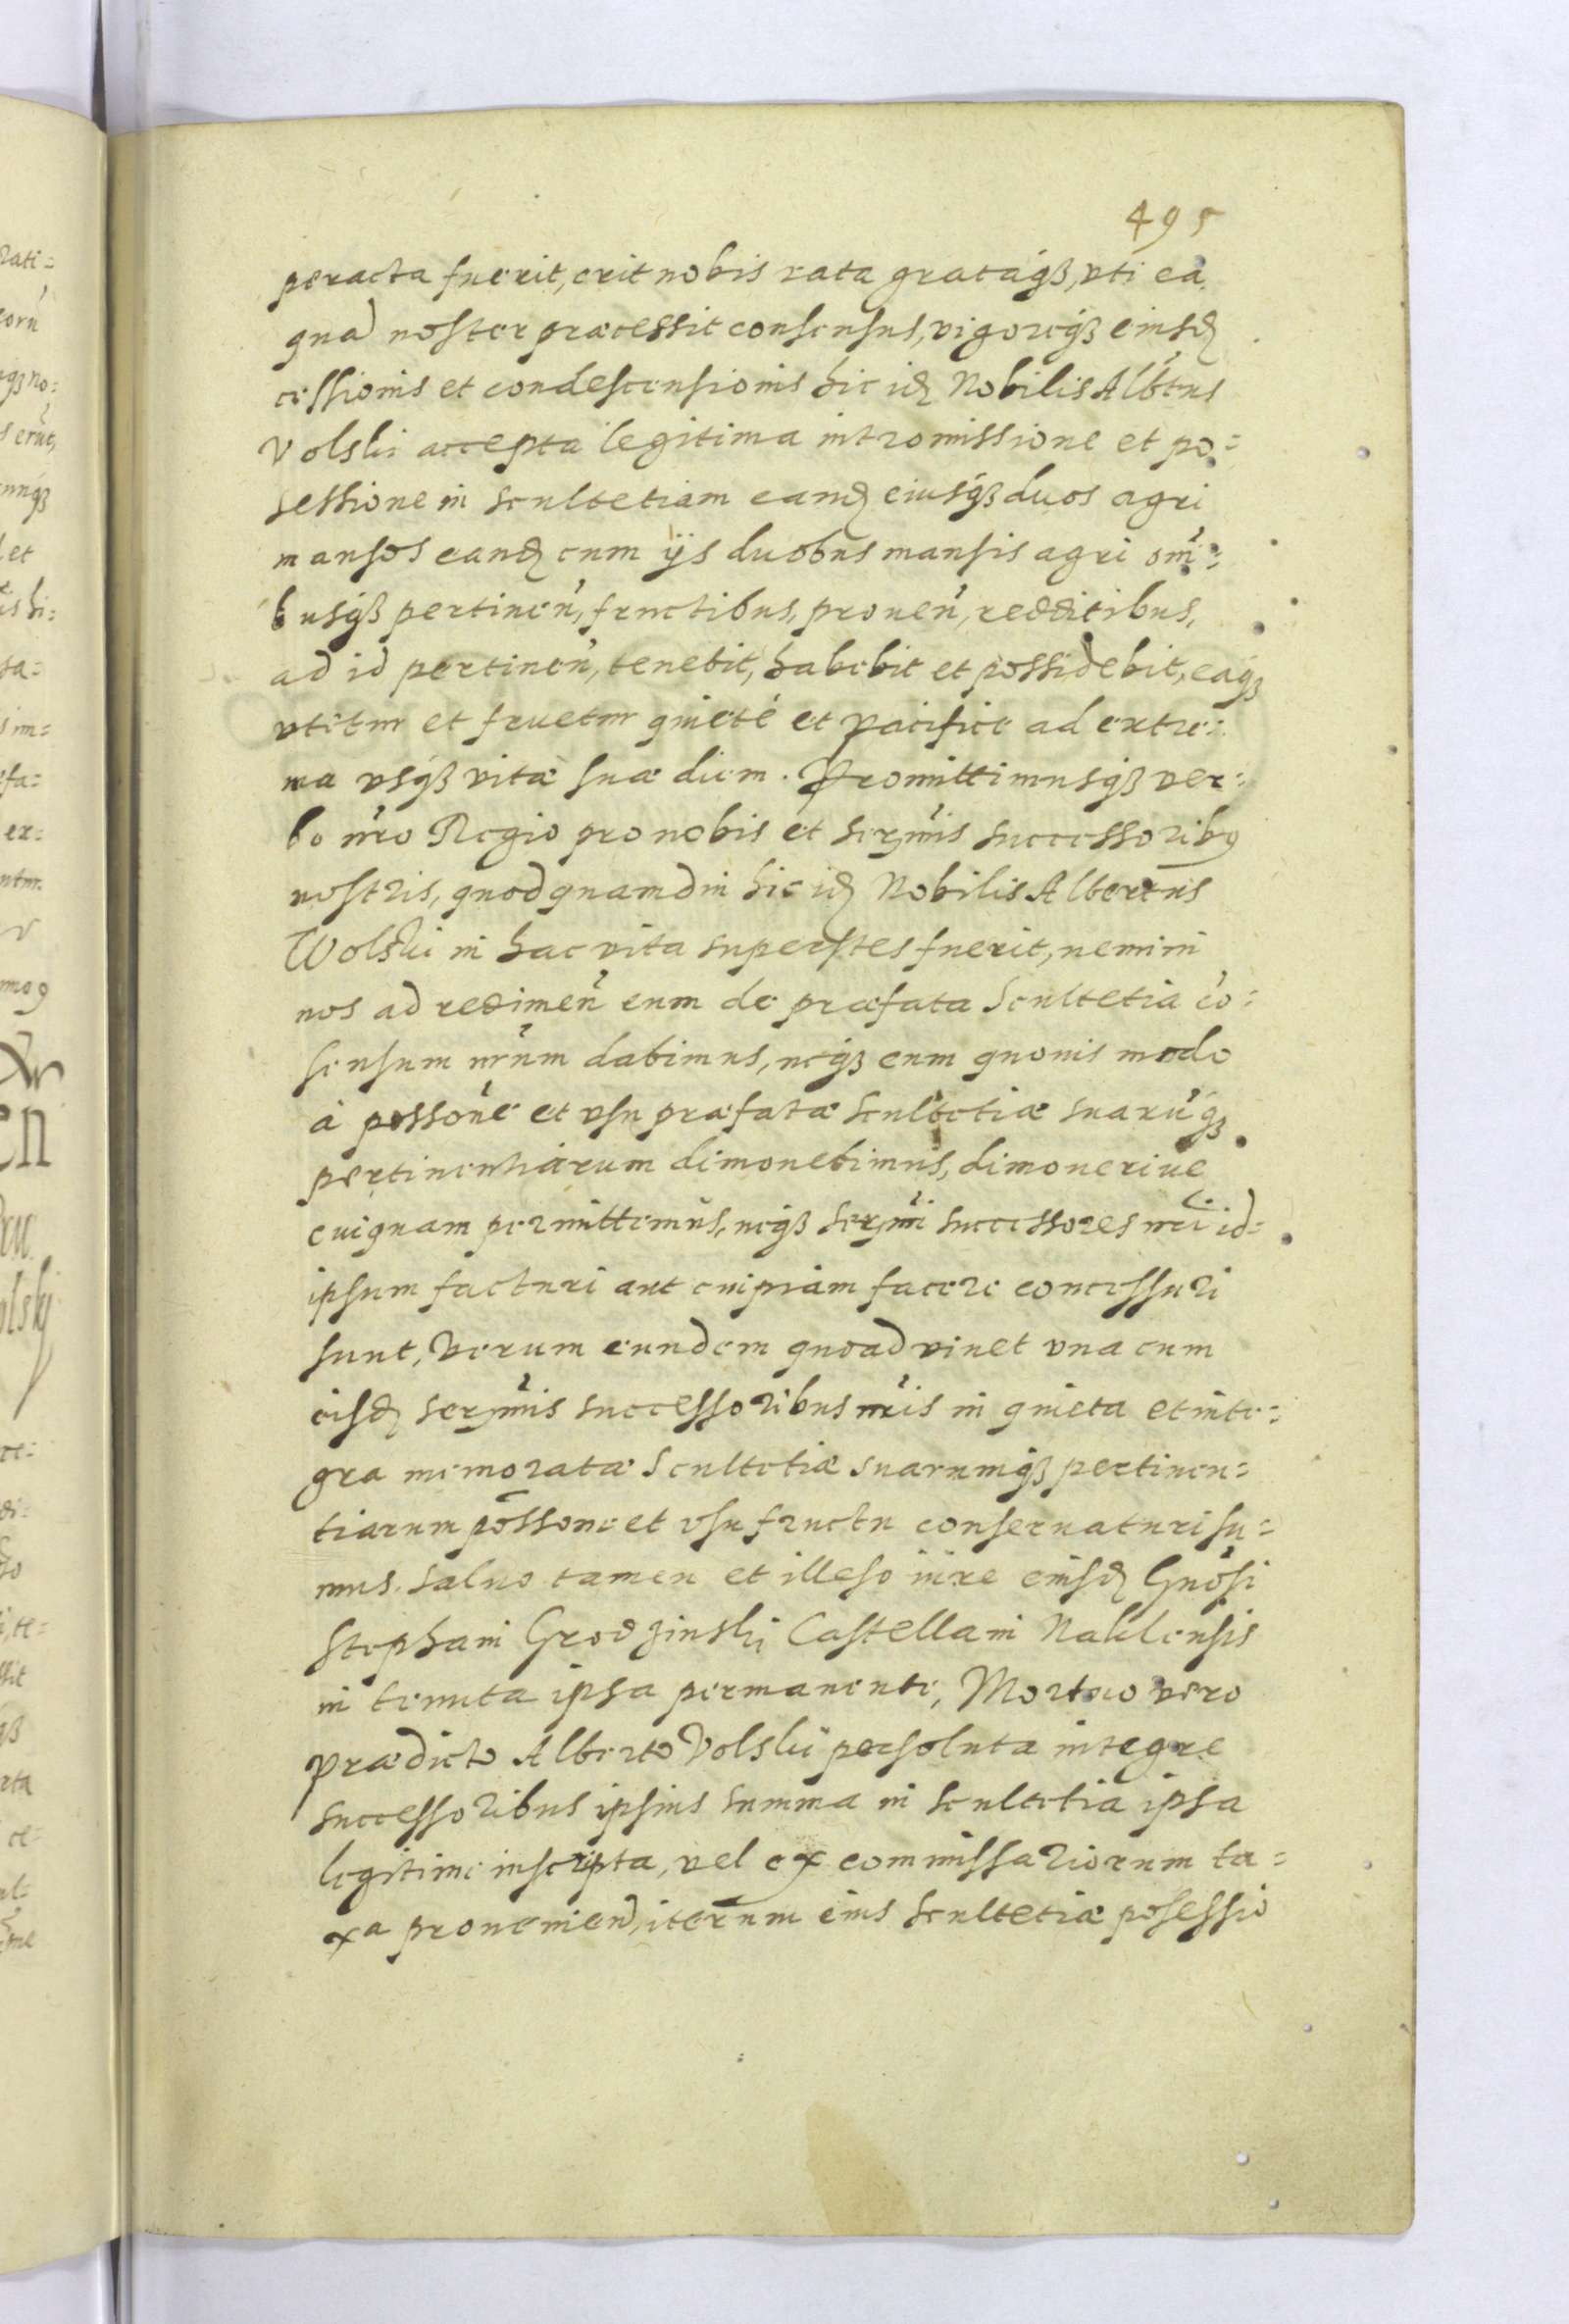 495
peracta fuerit, erit nobis rata grataqꝫ, vti ea,
quã noster præcessit consensus, vigoreqꝫ eiusđ
cessionis et condescensionis hic idꝫ Nobilis Albtus
Volski accepta legitima intromissione et po=
sessione in scultetiam eamđ eiusqꝫ duos agri
mansos eanđ cum ijs duobus mansis agri om̃=
busqꝫ pertinen̄, fructibus, prouen̄, redditibus,
ad id pertinen̄, tenebit, habebit et possidebit, eaqꝫ
vtetur et fruetur quieté et pacifice ad extre=
ma vsqꝫ vitæ suæ diem. Promittimusqꝫ ver=
bo nr̃o Regio pro nobis et serm̃is successoribꝰ
nostris, quod quamdiu hic idꝫ Nobilis Albertus
Wolski in hac vita superstes fuerit, nemini
nos ad redimen̄ eum de præfata Scultetia cõ=
sensum nr̃um dabimus, neqꝫ eum quouis modo
à possone et vsu præfatæ scultetiæ suarũqꝫ
pertinentiarum dimouebimus, dimouerive
cuiquam permittemus, neqꝫ serm̃i successores nr̃i id=
ipsum facturi aut cuipiam facere concessuri
sunt, Verum eundem quoad viuet vna cum
eisđ serm̃is successoribus nr̃is in quieta et inte=
gra memoratæ Scultetiæ suarumqꝫ pertinen=
tiarum põssone et vsufructu conseruaturi su=
mus. Saluo tamen et illeso iure eiusđ Gnõsi
Stephani Grodzinski Castellani Naklensis
in tenuta ipsa permanente, Mortuo vero
prædicto Alberto Volski persoluta integre
successoribus ipsius summa in scultetia ipsa
legitime inscripta, vel ex commissariorum ta=
xa prouenienđ, iterum eius scultetiæ posessio